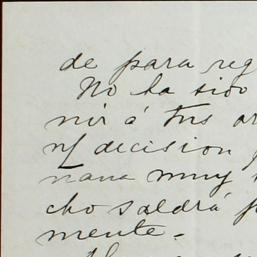 de para reg
No ha sido
nir á tus or
y decision
nana muy
cho saldrá p
mente.